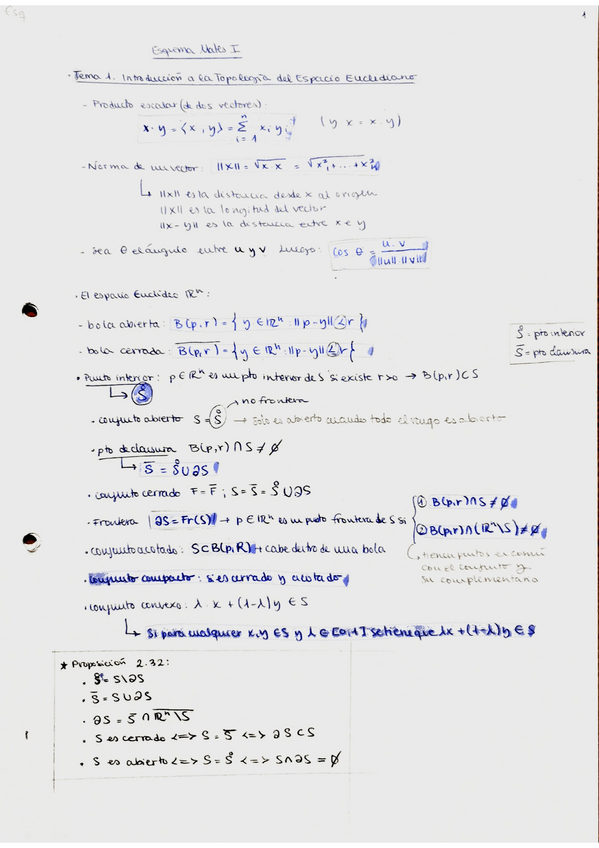 Esq
1
Esquema Mates I
· Tema 1. Introducción a la Topología del Espacio Euclediano
- Producto escalar (de dos vectores):
x · y = <x, y> = Σ_{i=1}^{n} x_i y_i (y x = x · y)
- Norma de un vector: ||x|| = √x x = √x₁² + ... + xₙ²
↳ ||x|| es la distancia desde x al origen
||x|| es la longitud del vector
||x - y|| es la distancia entre x e y
- Sea θ el ángulo entre u y v Luego: cos θ = u · v / ||u|| · ||v||
· El espacio Euclídeo ℝⁿ:
- bola abierta: B(p, r) = { y ∈ ℝⁿ : ||p - y|| < r }
- bola cerrada: B̅(̅p̅,̅ ̅r̅)̅ = { y ∈ ℝⁿ : ||p - y|| ≤ r }
S̊ = pto interior
S̅ = pto clausura
· Punto interior: p ∈ ℝⁿ es un pto interior de S si existe r > 0 → B(p, r) ⊂ S
↳ S̊
→ no frontera
· conjunto abierto S = S̊ → Solo es abierto cuando todo el rango es abierto
· pto de clausura B(p, r) ∩ S ≠ ∅
↳ S̅ = S̊ ∪ ∂S
· conjunto cerrado F = F̅ ; S = S̅ = S̊ ∪ ∂S
· Frontera ∂S = Fr(S) → p ∈ ℝⁿ es un punto frontera de S si { ① B(p, r) ∩ S ≠ ∅
② B(p, r) ∩ (ℝⁿ \ S) ≠ ∅
· conjunto acotado: S ⊂ B(p, R) → cabe dentro de una bola
↳ tienen puntos en común
con el conjunto y
su complementario
· conjunto compacto: si es cerrado y acotado
· conjunto convexo: λ · x + (1-λ) y ∈ S
↳ Si para cualquier x, y ∈ S y λ ∈ [0,1] se tiene que λx + (1-λ) y ∈ S
★ Proposición 2.32:
· S̊ = S \ ∂S
· S̅ = S ∪ ∂S
· ∂S = S̅ ∩ ℝ̅ⁿ̅ ̅\̅ ̅S̅
· S es cerrado <=> S = S̅ <=> ∂S ⊂ S
· S es abierto <=> S = S̊ <=> S ∩ ∂S = ∅